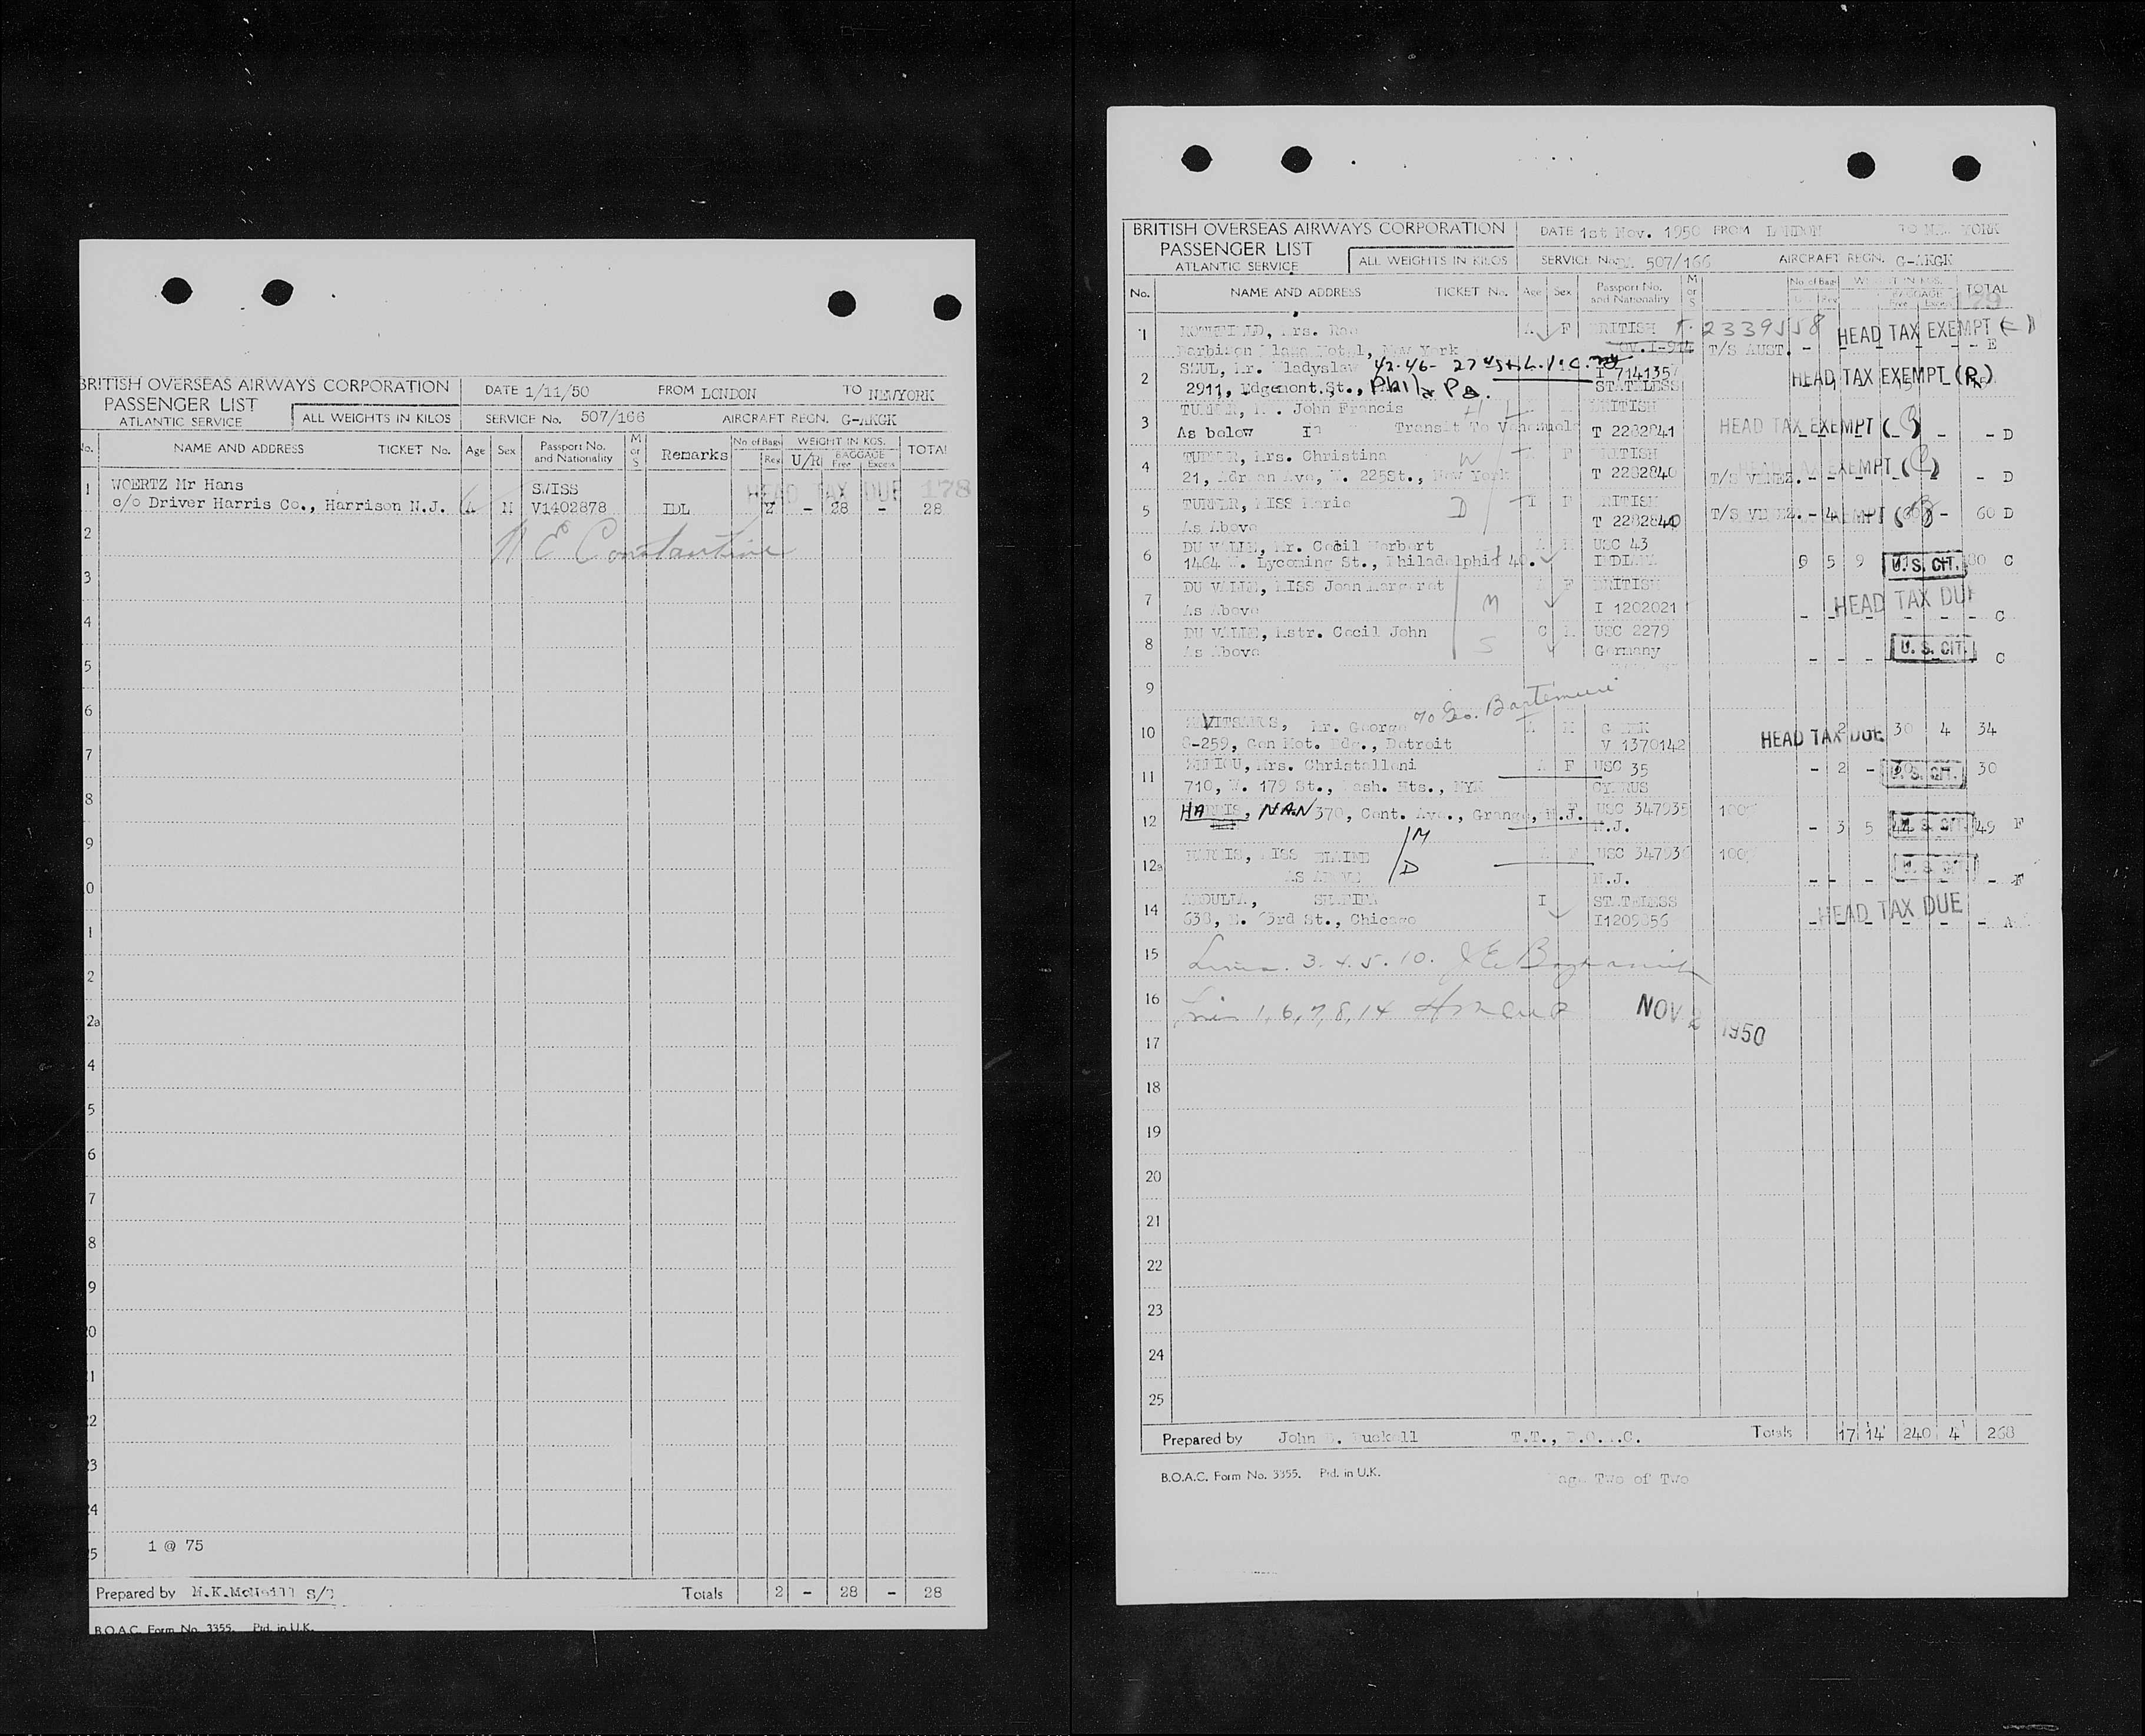 BRITISH OVERSEAS AIRWAYS CORPORATION
PASSENGER LIST
ATLANTIC SERVICE
ALL WEIGHTS IN KILOS
DATE 1/11/50 FROM LONDON TO NEWYORK
SERVICE No. 507/166 AIRCRAFT REGN. G-AKGK
No. NAME AND ADDRESS TICKET No. Age Sex Passport No. and Nationality M or S Remarks No of Bags Reg U/R WEIGHT IN KGS. BAGGAGE Free Excess TOTAL
HEAD TAX DUE 178
1 WOERTZ Mr Hans SWISS
c/o Driver Harris Co., Harrison N.J. A M V1402878 IDL 2 - 28 - 28
2 N E Constantine
3
4
5
6
7
8
9
0
1
2
2a
4
5
6
7
8
9
20
21
22
23
24
1 @ 75
25
Prepared by M.K.McNeill S/ Totals 2 - 28 - 28
B.O.A.C. Form No. 3355. Ptd. in U.K.
BRITISH OVERSEAS AIRWAYS CORPORATION
PASSENGER LIST
ATLANTIC SERVICE
ALL WEIGHTS IN KILOS
DATE 1st Nov. 1950 FROM LONDON TO NEW YORK
SERVICE No. 507/166 AIRCRAFT REGN. G-AKGK
No. NAME AND ADDRESS TICKET No. Age Sex Passport No. and Nationality M or S No of Bags Reg WEIGHT IN KGS. BAGGAGE Free Excess TOTAL
179
1 Mrs. A F BRITISH T. 2339558 HEAD TAX EXEMPT
Barbizon Plaza Hotel, New York T/S AUST. - - E
2 Mr. Wladyslaw 42-46- 27 St L.I.C. NY I 714135 HEAD TAX EXEMPT (R)
2911, Edgemont.St., Phila Pa. STATELESS
3 TURNER, Mr. John Francis H BRITISH HEAD TAX EXEMPT
As below Transit To Venezuela T 2282841 - - D
4 TURNER, Mrs. Christina W F BRITISH EXEMPT
21, Adrian Ave, W. 225St., New York T 2282840 T/S VENEZ. - - - D
5 TURNER, MISS Marie D I F BRITISH
As Above T 2282840 T/S VENEZ. - 4 - EXEMPT 60 D
6 DU VALLE, Mr. Cecil Herbert A M USC 43
1464 W. Lycoming St., Philadelphia 40. INDIANA 5 9 U.S. CIT. C
7 DU VALLE, MISS Joan Margaret F BRITISH
As Above M I 1202021 HEAD TAX DUE - - - C
8 DU VALLE, Mstr. Cecil John C M USC 2279
As Above S Germany - - - U.S. CIT. C
9
c/o Geo.
10 Mr. George A M GREEK
8-259, Gen Mot. Bdg., Detroit V 1370142 HEAD TAX DUE 2 30 4 34
11 Mrs. Christalleni A F USC 35
710, W. 179 St., Wash. Hts., NYK CYPRUS - 2 - U.S. CIT. 30
12 HARRIS, NAN 370, Cent. Ave., Orange, N.J. F USC 347935 100
M N.J. - 3 5 U.S. CIT. 49 F
12a HARRIS, MISS ELAINE USC 347936 100
AS ABOVE D N.J. - - - U.S. CIT. - F
14 ABDULLA, I STATELESS
638, E. 63rd St., Chicago HEAD TAX DUE - - A
15 Lines. 3. 4. 5. 10.
16 Lines 1, 6, 7, 8, 14 NOV 2 1950
17
18
19
20
21
22
23
24
25
Prepared by John Totals 17 14 240 4 268
B.O.A.C. Form No. 3355. Ptd. in U.K. Page Two of Two